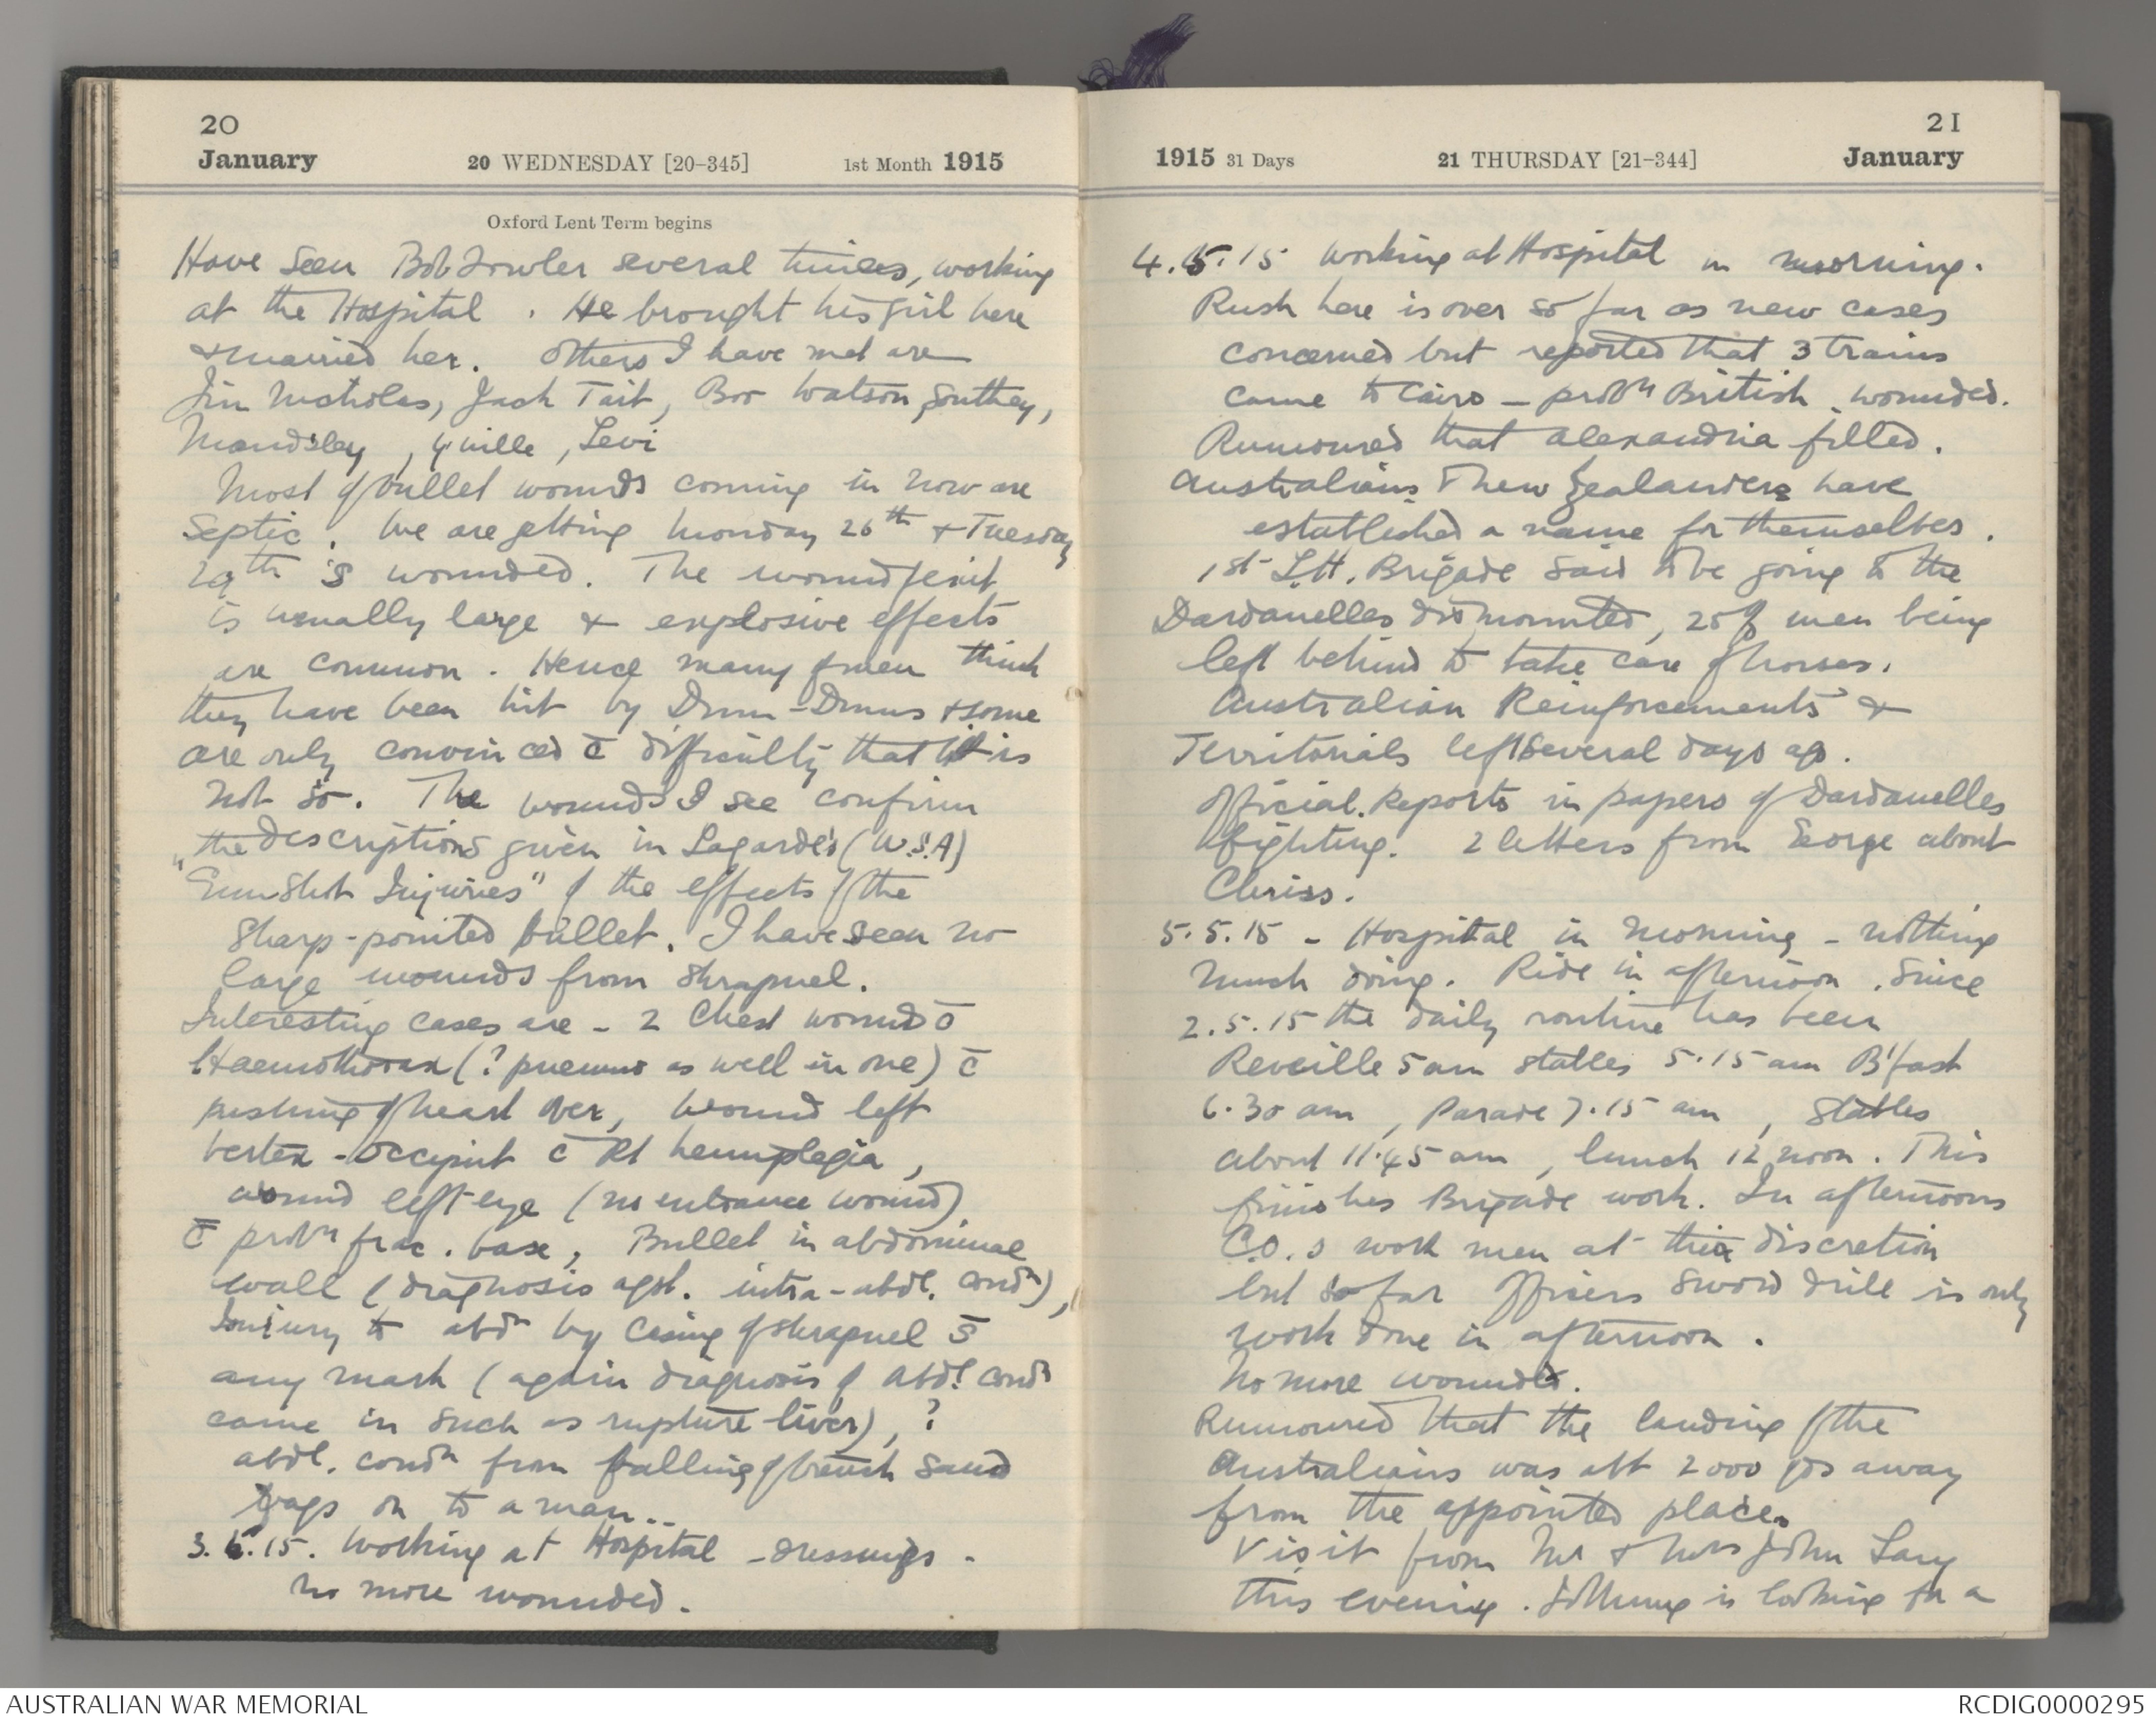 20
January 20 WEDNESDAY [20-345] 1st Month 1915
Oxford Lent Term begins
Have seen Bob Fowler several times, working
at the Hospital. He brought his girl here
& married her. Others I have met are
Jim Nicholas, Jack Tait, Boo Watson, Southey,
Maudsley, Levi
Most of bullet wounds coming in now are
septic. We are getting Monday 26th & Tuesday
th's wounded. The wound of exit
is usually large & explosive effects
are common. Hence many of men think
they have been hit by Dum-Dums & some
are only convinced c̄ difficulty that it is
not so. The wounds I see confirm
the descriptions given in Lagarde's (U.S.A)
"Gun Shot Injuries" of the effects of the
sharp-pointed bullet. I have seen no
large wounds from shrapnel.
Interesting cases are - 2 Chest wounds c̄
Haemothorax (? pneumo as well in one) c̄
pushing of heart over, wound left
vertex - occiput c̄ Rt hemiplegia,
wound left eye (no entrance wound)
c̄ probly frac. base, Bullet in abdominal
wall (diagnosis agst. intra-abdl. condn),
Injury to abdn by casing of shrapnel s̄
any mark (again diagnosis of abdl condn
came in such as rupture liver), ?
abdl. condn from falling of trench sand
bags on to a man..
3.5.15. Working at Hospital - dressings -
no more wounded.
21
1915 31 Days 21 THURSDAY [21-344] January
4.5.15 Working at Hospital in morning.
Rush here is over so far as new cases
concerned but reported that 3 trains
came to Cairo - probly British wounded.
Rumoured that Alexandria filled.
Australians & New Zealanders have
established a name for themselves.
1st L.H. Brigade said to be going to the
Dardanelles dismounted, 25% men being
left behind to take care of horses.
Australian Reinforcements &
Territorials left several days ago.
Official Reports in papers of Dardanelles
fighting. 2 letters from George about
Chriss.
5.5.15 - Hospital in Morning - nothing
much doing. Ride in afternoon. Since
2.5.15 the daily routine has been
Reveille 5 am stables 5.15 am B'fast
6.30 am, Parade 7.15 am, Stables
about 11.45 am, lunch 12 noon. This
finishes Brigade work. In afternoons
C.O.s work men at their discretion
but so far Officers sword drill is only
work done in afternoon.
No more wounded.
Rumoured that the landing of the
Australians was abt 2000 yds away
from the appointed place.
Visit from Mr & Mrs John Lang
this evening. Johnny is looking for a
AUSTRALIAN WAR MEMORIAL
RCDIG0000295